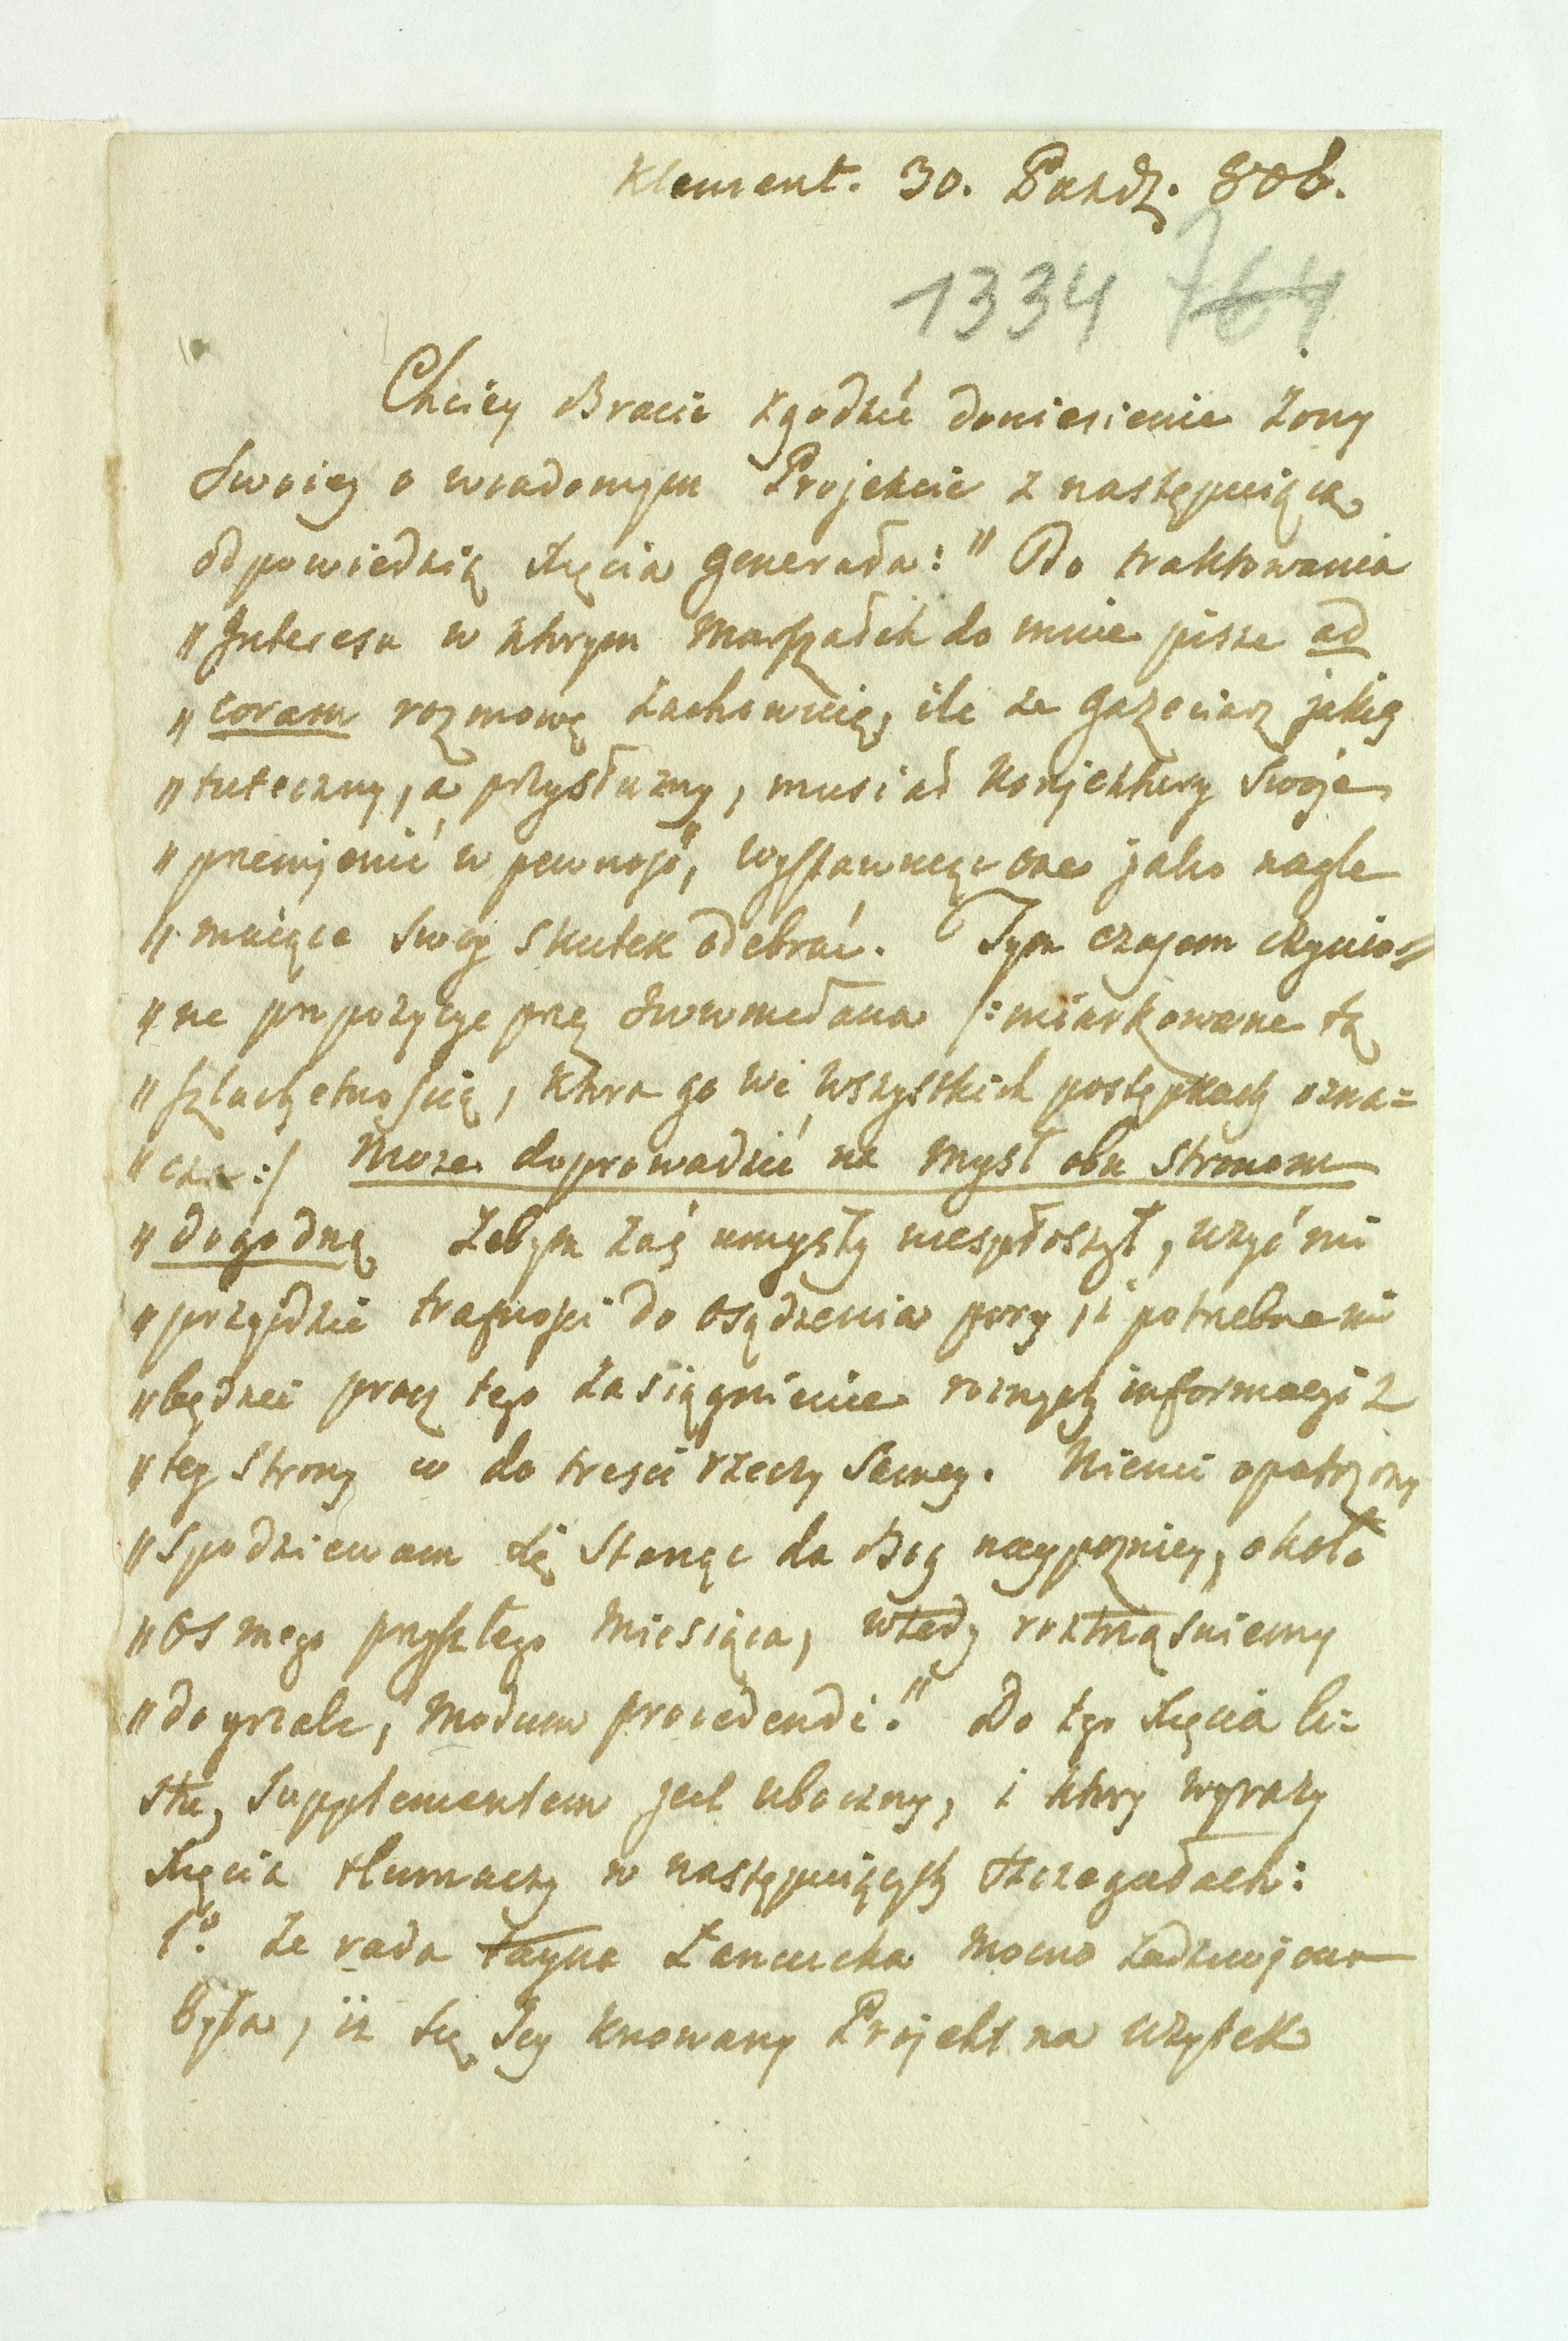 Klement. 30. Pazdz. 806.
1334 764
Chciey Bracie zgodzić doniesienie Zony
Swoiey o wiadomym Projekcie z następuiącą
odpowiedzią Xięcia Generała: " Do traktowania
" Interesu w ktorym Marszałek do mnie pisze ad
" coram rozmowę zachowuię, ile ze Gazeciarz jakiś
" tuteczny, a przysłużny, musiał Konjektury Swoje
" przemjenić w pewność, wystawuiąc one jako nagle
" maiące Swoy Skutek odebrać. Tym czasem czynio=
" ne propozycye przez /: miarkowane tą
" szlachetnością, ktora go we wszystkich postępkach ozna=
" cza :/ Moze doprowadzić na Mysl obu Stronom
" dogodną Zebym zaś umysły niespłoszył, uzyć mi
" przyidzie trafności do osądzenia pory, i potrzebne mi
" będzie procz tego zasiągnienie roznych informacyi z
" tey Strony co do tresci rzeczy Samey. Niemi opatrzony
" Spodziewam Się Stanąc da Bog naypozniey, około
" osmego przyszłego Miesiąca, wtedy roztrząsniemy
" dogrzale, Modum procedendi." Do tego Xięcia li=
stu, Supplementem jest uboczny, i ktory wyrazy
Xięcia tlumaczy w następuiących Szczegułach:
1o. Ze rada tayna Łancucka mocno zadziwjona
była, iz Się Jey knowany Projekt na uzytek